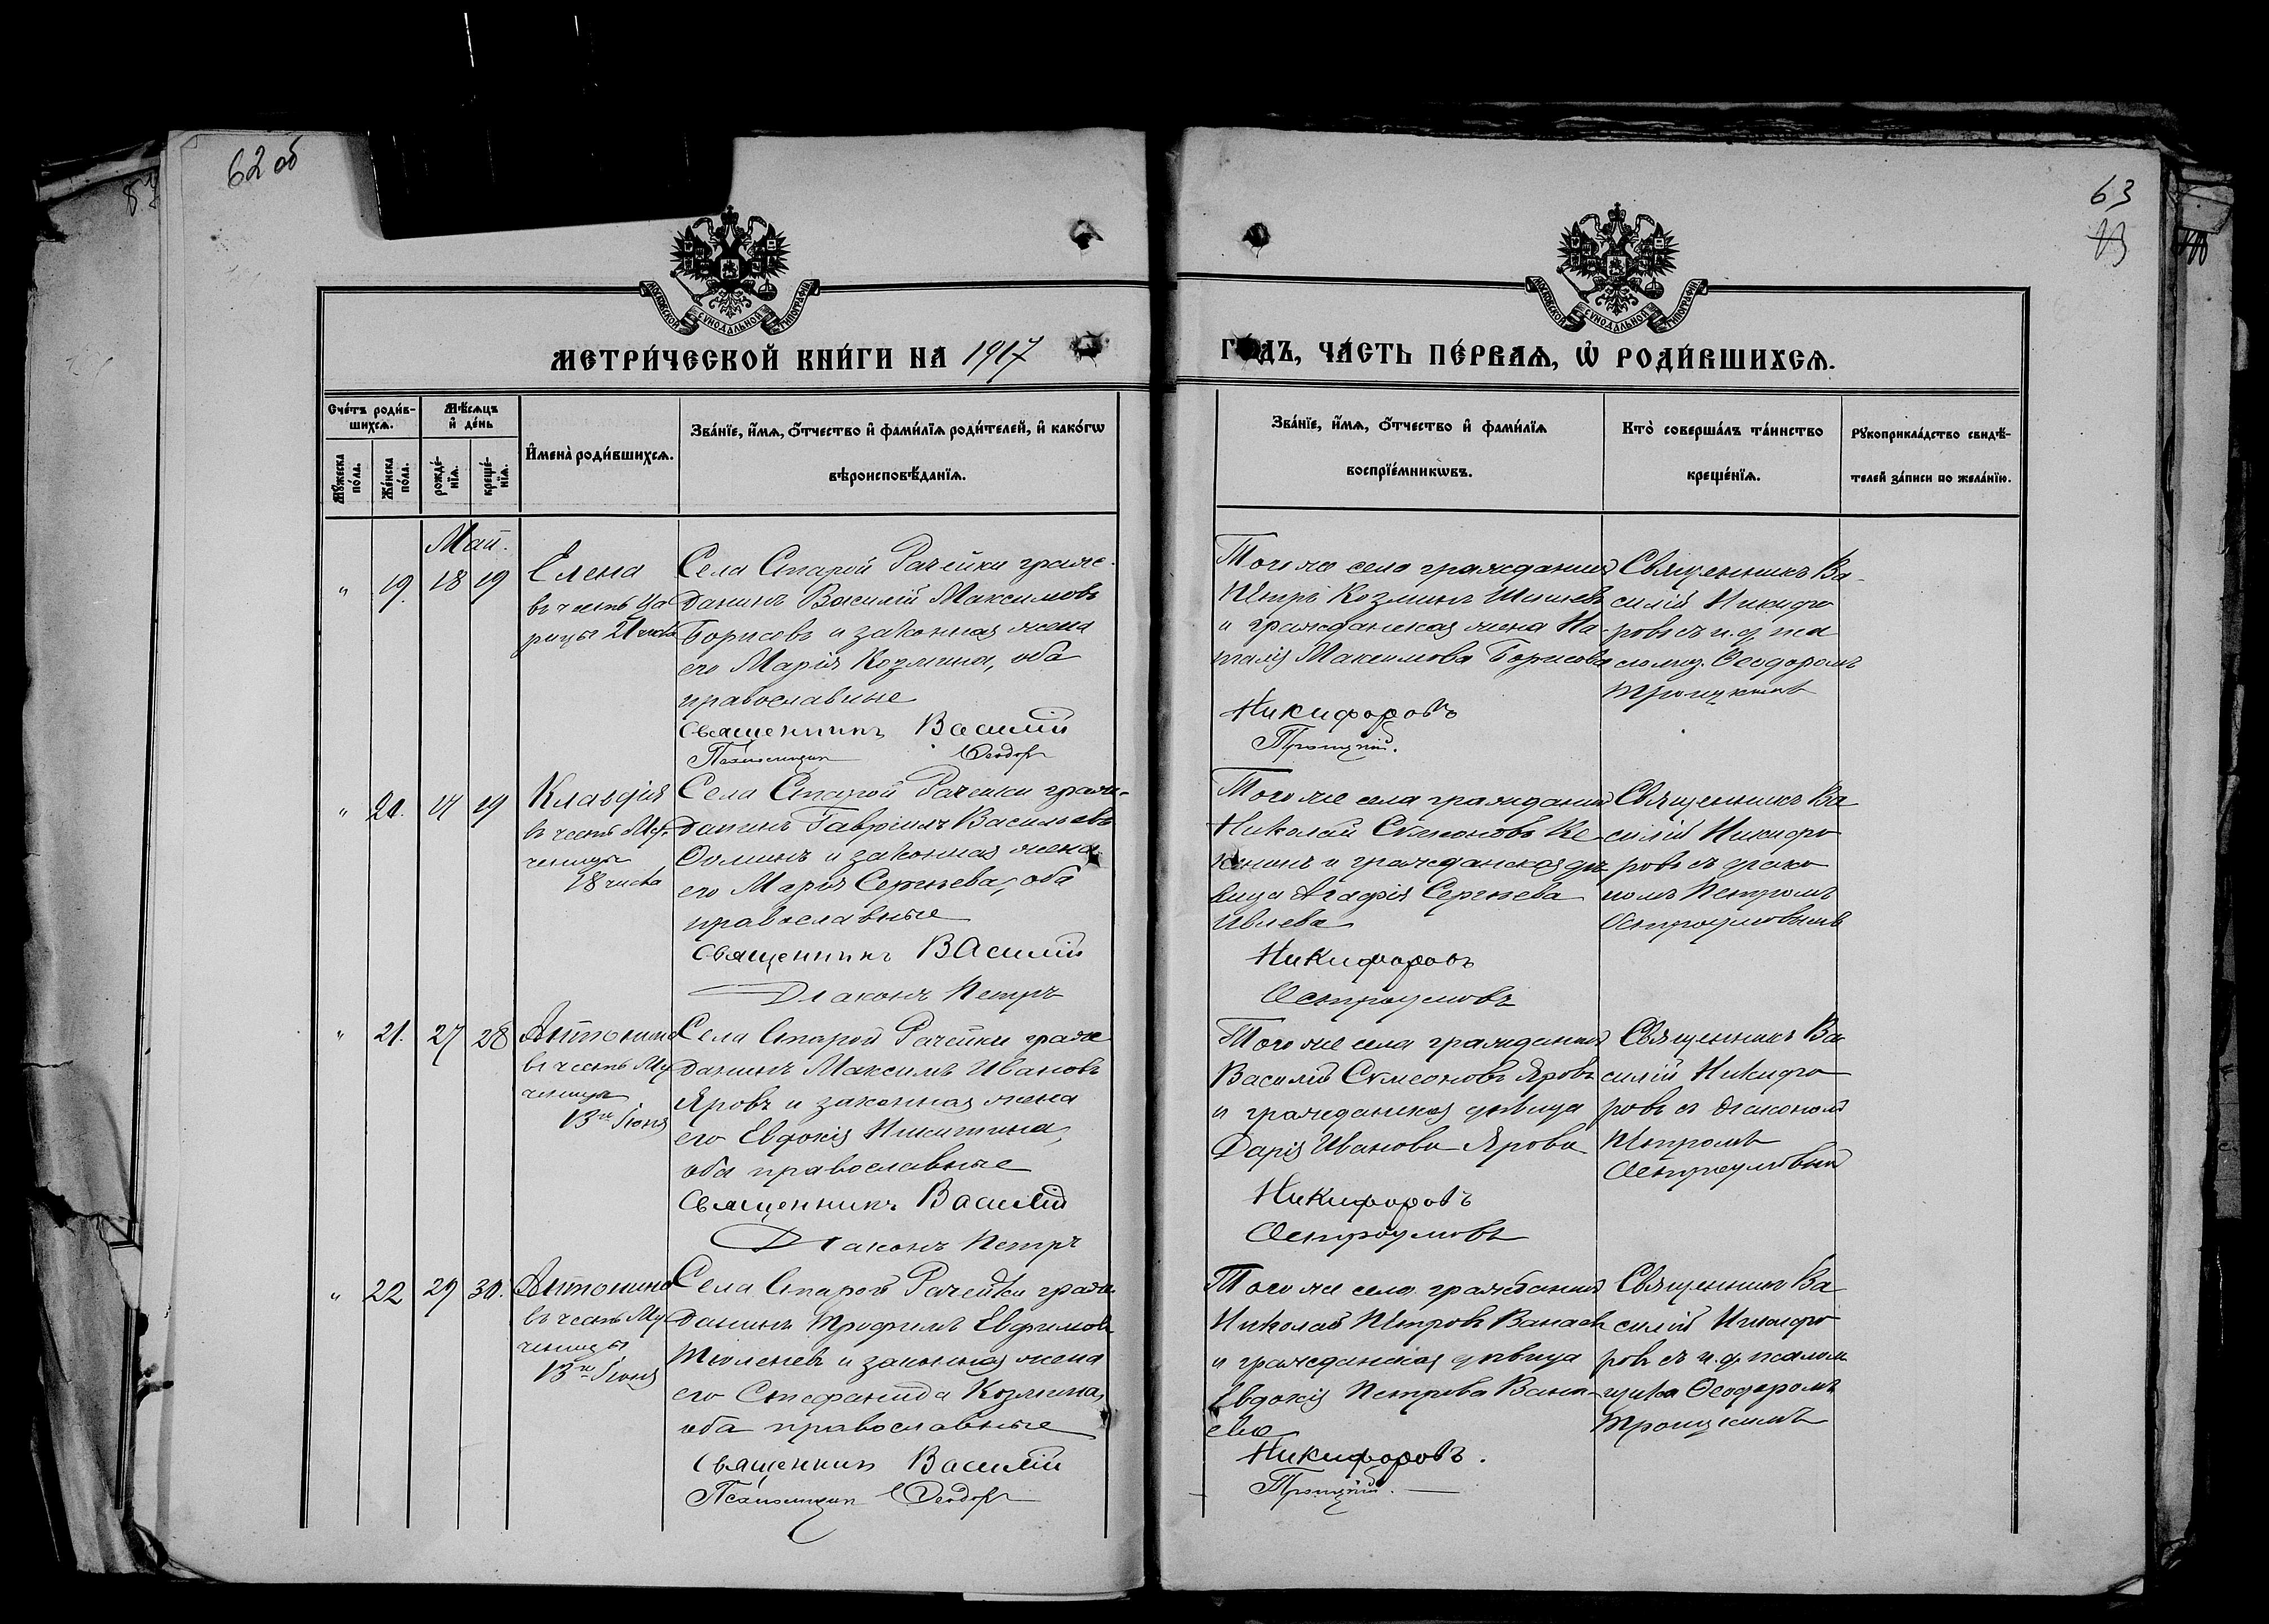 62 об
63
МОСКОВСКОЙ СУНОДАЛЬНОЙ ТИПОГРАФІИ
МОСКОВСКОЙ СУНОДАЛЬНОЙ ТИПОГРАФІИ
МЕТРИ́ЧЕСКОЙ КНИ́ГИ НА 1917
ГОДЪ, ЧА́СТЬ ПЕ́РВАѦ, Ѡ҆ РОДИ́ВШИХСѦ.
Сче́тъ роди́в-
шихсѧ.
Мѣ́сѧцъ
и҆ де́нь
Мꙋ́жеска
по́ла.
Же́нска
по́ла.
рожде́-
нїѧ.
креще́-
нїѧ.
И҆мена̀ роди́вшихсѧ.
Зва́нїе, и҆́мѧ, ѻ҆́тчество и҆ фами́лїѧ роди́телей, и҆ како́гѡ
вѣроисповѣ́данїѧ.
Зва́нїе, и҆́мѧ, ѻ҆́тчество и҆ фами́лїѧ
воспрїе́мникѡвъ.
Кто̀ соверша́лъ та́инство
креще́нїѧ.
Рꙋкоприкла́дство свидѣ́-
телей за́писи по жела́нїю.
Май.
" 19. 18 19
Елена
въ честь Ца
рицы 21 числа
Села Старой Рачейки граж-
данинъ Василій Максимовъ
Борисовъ и законная жена
его Марія Козмина, оба
православные
Священникъ Василій
Псаломщикъ Ѳеодоръ
Того же села гражданинъ
Петръ Козминъ
и гражданская жена На-
талія Максимова Борисова
Никифоровъ
Троицкій.
Священникъ Ва-
силій Никифо
ровъ съ и. д. пса
ломщ. Ѳеодоромъ
Троицкимъ
" 20. 17 19
Клавдія
въ честь Му-
ченицы
18 числа
Села Старой Рачейки граж-
данинъ Гавріилъ Васильевъ
Ѳоминъ и законная жена
его Марія Сергеева, оба
православные
Священникъ Василій
Діаконъ Петръ
Того же села гражданинъ
Николай Симеоновъ
и гражданская дѣ-
вица Агафія Сергеева
Ивлева
Никифоровъ
Остроумовъ
Священникъ Ва
силій Никифо
ровъ съ діако
номъ Петромъ
Остроумовымъ
" 21. 27 28
Антонина
въ честь Му
ченицы
13го Іюня
Села Старой Рачейки граж
данинъ Максимъ Ивановъ
Яровъ и законная жена
его Евдокія Никитина,
оба православные
Священникъ Василій
Діаконъ Петръ
Того же села гражданинъ
Василій Симеоновъ Яровъ
и гражданская дѣвица
Дарія Иванова Ярова
Никифоровъ
Остроумовъ
Священникъ Ва
силій Никифо
ровъ съ діакономъ
Петромъ
Остроумовым
" 22 29 30.
Антонина
въ честь Му
ченицы
13го Іюня
Села Старой Рачейки граж
данинъ Трофимъ Евфимовъ
Тюленевъ и законная жена
его Стефанида Козмина,
оба православные
Священникъ Василій
Псаломщикъ Ѳеодоръ
Того же села гражданинъ
Николай Петровъ Ванаевъ
и гражданская дѣвица
Евдокія Петрова Вана-
ева
Никифоровъ.
Троицкій.
Священникъ Ва
силій Никифо
ровъ съ и. д. псалом
щика Ѳеодоромъ
Троицкимъ